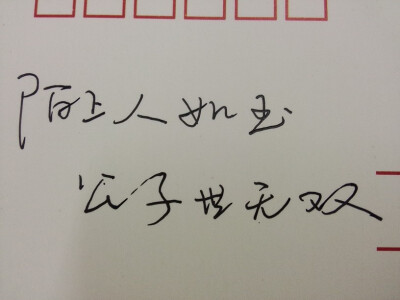 陌上人如玉
公子世无双